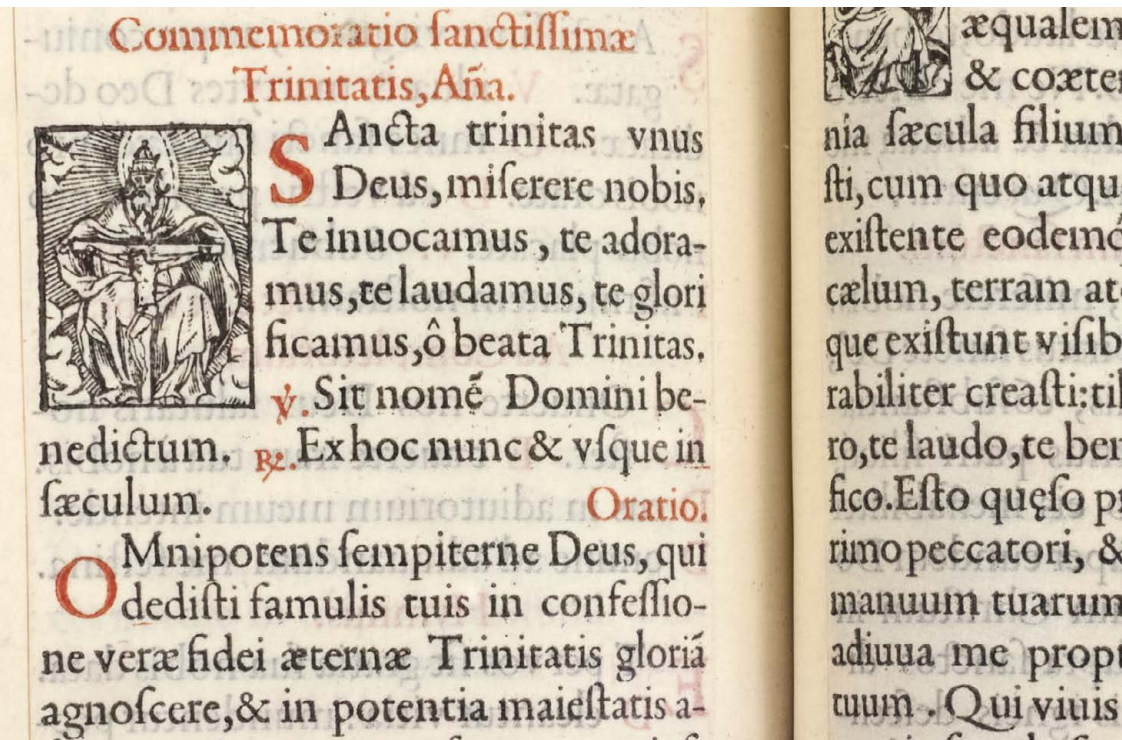 Commemoratio ſanctiſſimæ
Trinitatis, Aña.
SAncta trinitas vnus
Deus, miſerere nobis.
Te inuocamus, te adora-
mus, te laudamus, te glori
ficamus, ô beata Trinitas.
℣. Sit nomẽ Domini be-
nedictum. ℞. Ex hoc nunc & vſque in
ſæculum. Oratio.
OMnipotens ſempiterne Deus, qui
dediſti famulis tuis in confeſſio-
ne veræ fidei æternæ Trinitatis gloriã
agnoſcere, & in potentia maieſtatis a-
æqualem
& coæter
nia ſæcula filium
ſti, cum quo atqu
exiſtente eodemq́
cælum, terram at
que exiſtunt viſib
rabiliter creaſti: ti
ro, te laudo, te ben
fico. Eſto quęſo p
rimo peccatori, &
manuum tuarum
adiuua me prop
tuum. Qui viuis